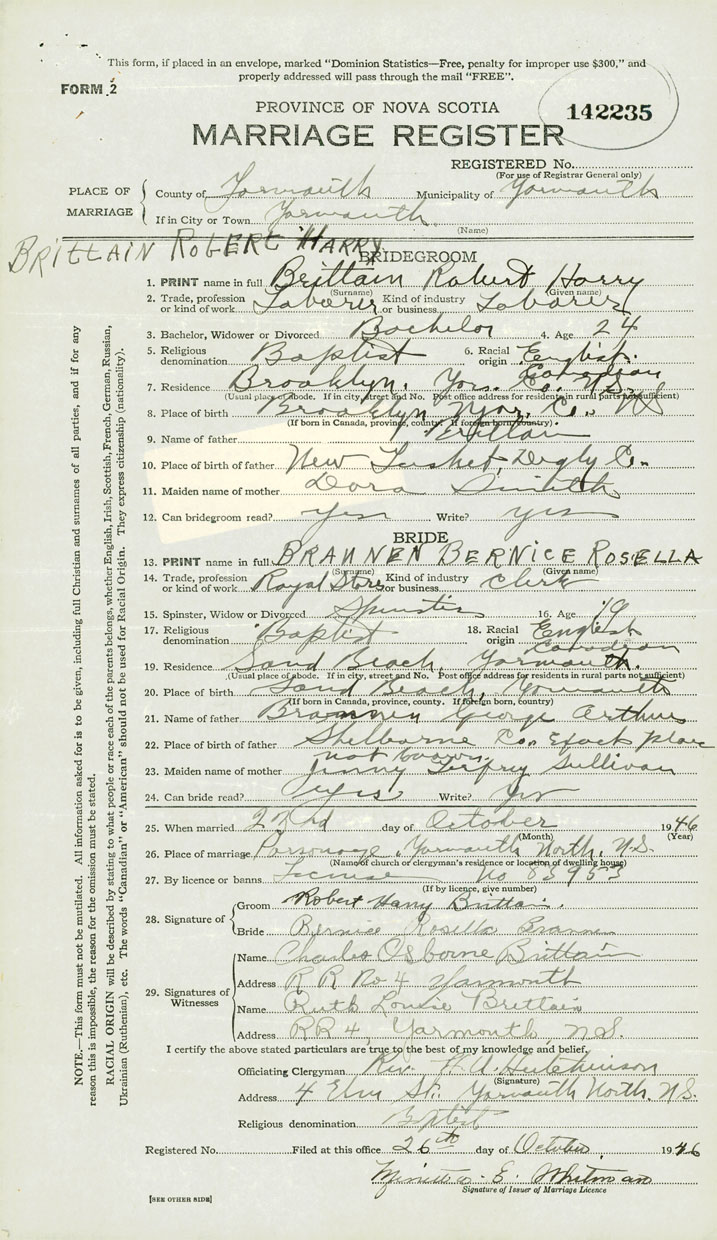 This form, if placed in an envelope, marked "Dominion Statistics—Free, penalty for improper use $300," and
properly addressed will pass through the mail "FREE".
FORM 2
142235
PROVINCE OF NOVA SCOTIA
MARRIAGE REGISTER
REGISTERED No.
(For use of Registrar General only)
PLACE OF MARRIAGE
County of Yarmouth Municipality of Yarmouth
If in City or Town Yarmouth
(Name)
BRITTAIN ROBERT HARRY
BRIDEGROOM
1. PRINT name in full Brittain Robert Harry
(Surname) (Given name)
2. Trade, profession or kind of work Laborer Kind of industry or business Laborer
3. Bachelor, Widower or Divorced Bachelor 4. Age 24
5. Religious denomination Baptist 6. Racial origin English Canadian
7. Residence Brooklyn, Yar. Co. N.S.
(Usual place of abode. If in city, street and No. Post office address for residents in rural parts not sufficient)
8. Place of birth Brooklyn Yar. Co. NS
(If born in Canada, province, county. If foreign born, country)
9. Name of father Brittain
10. Place of birth of father New Tusket, Digby Co.
11. Maiden name of mother Dora Smith
12. Can bridegroom read? yes Write? yes
BRIDE
13. PRINT name in full BRANNEN BERNICE ROSELLA
(Surname) (Given name)
14. Trade, profession or kind of work Royal Store Kind of industry or business Clerk
15. Spinster, Widow or Divorced Spinster 16. Age 19
17. Religious denomination Baptist 18. Racial origin English Canadian
19. Residence Sand Beach, Yarmouth.
(Usual place of abode. If in city, street and No. Post office address for residents in rural parts not sufficient)
20. Place of birth Sand Beach, Yarmouth
(If born in Canada, province, county. If foreign born, country)
21. Name of father Brannen George Arthur
22. Place of birth of father Shelburne Co. Exact place
not known
23. Maiden name of mother Jenny Sullivan
24. Can bride read? Yes Write? Yes
25. When married 22nd day of October 1946
(Month) (Year)
26. Place of marriage Parsonage, Yarmouth North, N.S.
(Name of church or clergyman's residence or location of dwelling house)
27. By licence or banns License No 83953
(If by licence, give number)
28. Signature of
Groom Robert Harry Brittain.
Bride Bernice Rosella Brannen
29. Signatures of Witnesses
Name Charles Osborne Brittain
Address R R No 4 Yarmouth
Name Ruth Louise Brittain
Address RR 4, Yarmouth, N.S.
I certify the above stated particulars are true to the best of my knowledge and belief.
Officiating Clergyman Rev. H. A. Hutchinson
(Signature)
Address 4 Elm St. Yarmouth North, N.S.
Religious denomination Baptist
Registered No. Filed at this office 26th day of October, 1946
E. Whitman
Signature of Issuer of Marriage Licence
[SEE OTHER SIDE]
NOTE.—This form must not be mutilated. All information asked for is to be given, including full Christian and surnames of all parties, and if for any
reason this is impossible, the reason for the omission must be stated.
RACIAL ORIGIN will be described by stating to what people or race each of the parents belongs, whether English, Irish, Scottish, French, German, Russian,
Ukrainian (Ruthenian), etc. The words "Canadian" or "American" should not be used for Racial Origin. They express citizenship (nationality).